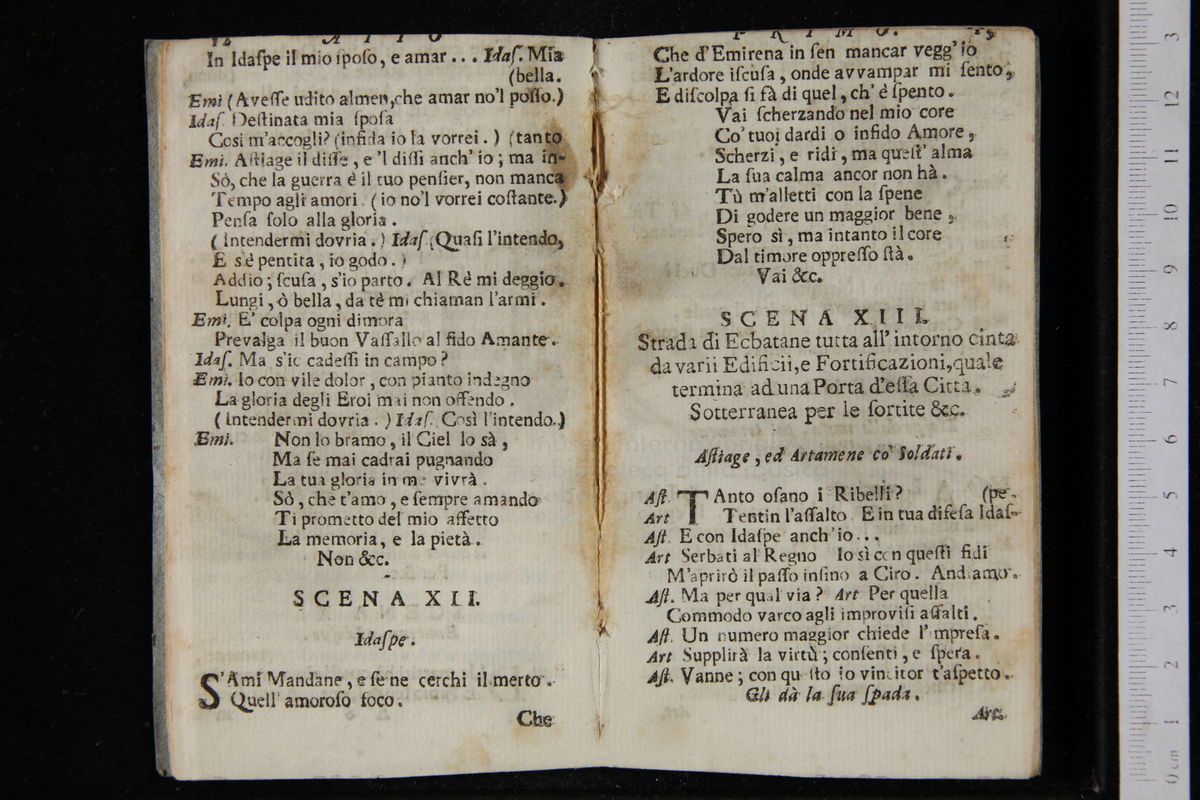 12 ATTO
In Idaſpe il mio ſpoſo, e amar... Idaſ. Mia
(bella.
Emi (Aveſſe udito almen, che amar no'l poſſo.)
Idaſ. Deſtinata mia ſpoſa
Cosi m'accogli? (infida io la vorrei.) (tanto
Emi. Aſtiage il diſſe, e 'l diſſi anch' io; ma in-
Sò, che la guerra è il tuo penſier, non manca
Tempo agli amori. (io no'l vorrei coſtante.)
Penſa ſolo alla gloria.
(intendermi dovria.) Idaſ (Quaſi l'intendo,
E s'è pentita, io godo.)
Addio; ſcuſa, s'io parto. Al Rè mi deggio.
Lungi, ò bella, da tè mi chiaman l'armi.
Emi. E' colpa ogni dimora
Prevalga il buon Vaſſallo al fido Amante.
Idaſ. Ma s'io cadeſſi in campo?
Emi. Io con vile dolor, con pianto indegno
La gloria degli Eroi mai non offendo.
(intendermi dovria.) Idaſ. Così l'intendo.)
Emi. Non lo bramo, il Ciel lo sà,
Ma ſe mai cadrai pugnando
La tua gloria in me vivrà.
Sò, che t'amo, e ſempre amando
Ti prometto del mio affetto
La memoria, e la pietà.
Non &c.
SCENA XII.
Idaſpe.
S'Ami Mandane, e ſe ne cerchi il merto.
Quell' amoroſo foco.
Che
PRIMO.
Che d'Emirena in ſen mancar vegg' io
L'ardore iſcuſa, onde avvampar mi ſento,
E diſcolpa ſi fà di quel, ch' è ſpento.
Vai ſcherzando nel mio core
Co' tuoi dardi o infido Amore,
Scherzi, e ridi, ma queſt' alma
La ſua calma ancor non hà.
Tù m'alletti con la ſpene
Di godere un maggior bene,
Spero sì, ma intanto il core
Dal timore oppreſſo ſtà.
Vai &c.
SCENA XIII.
Strada di Ecbatane tutta all' intorno cinta
da varii Edificii, e Fortificazioni, quale
termina ad una Porta d'eſſa Citta.
Sotterranea per le ſortite &c.
Aſtiage, ed Artamene co' Soldati.
Aſt. TAnto oſano i Ribelli? (pe.
Art Tentin l'aſſalto. E in tua difeſa Idaſ-
Aſt. E con Idaſpe anch'io...
Art Serbati al Regno Io sì con queſti fidi
M'aprirò il paſſo inſino a Ciro. Andiamo.
Aſt. Ma per qual via? Art Per quella
Commodo varco agli improviſi aſſalti.
Aſt. Un numero maggior chiede l'impreſa.
Art Supplirà la virtù; conſenti, e ſpera.
Aſt. Vanne; con queſto io vincitor t'aſpetto.
Gli dà la ſua ſpada.
Art.
0 cm 1 2 3 4 5 6 7 8 9 10 11 12 3